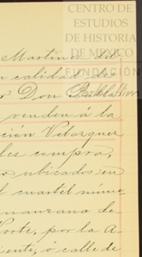 CENTRO DE
ESTUDIOS
DE HISTORIA
DE MEXICO
FUNDACIÓN
Martinez del
calidad de
Don Pablo
venden á la
ción Velazquez
compra,
ubicados en
cuartel núme
manzana de
Norte, por la A
iente, ó calle de